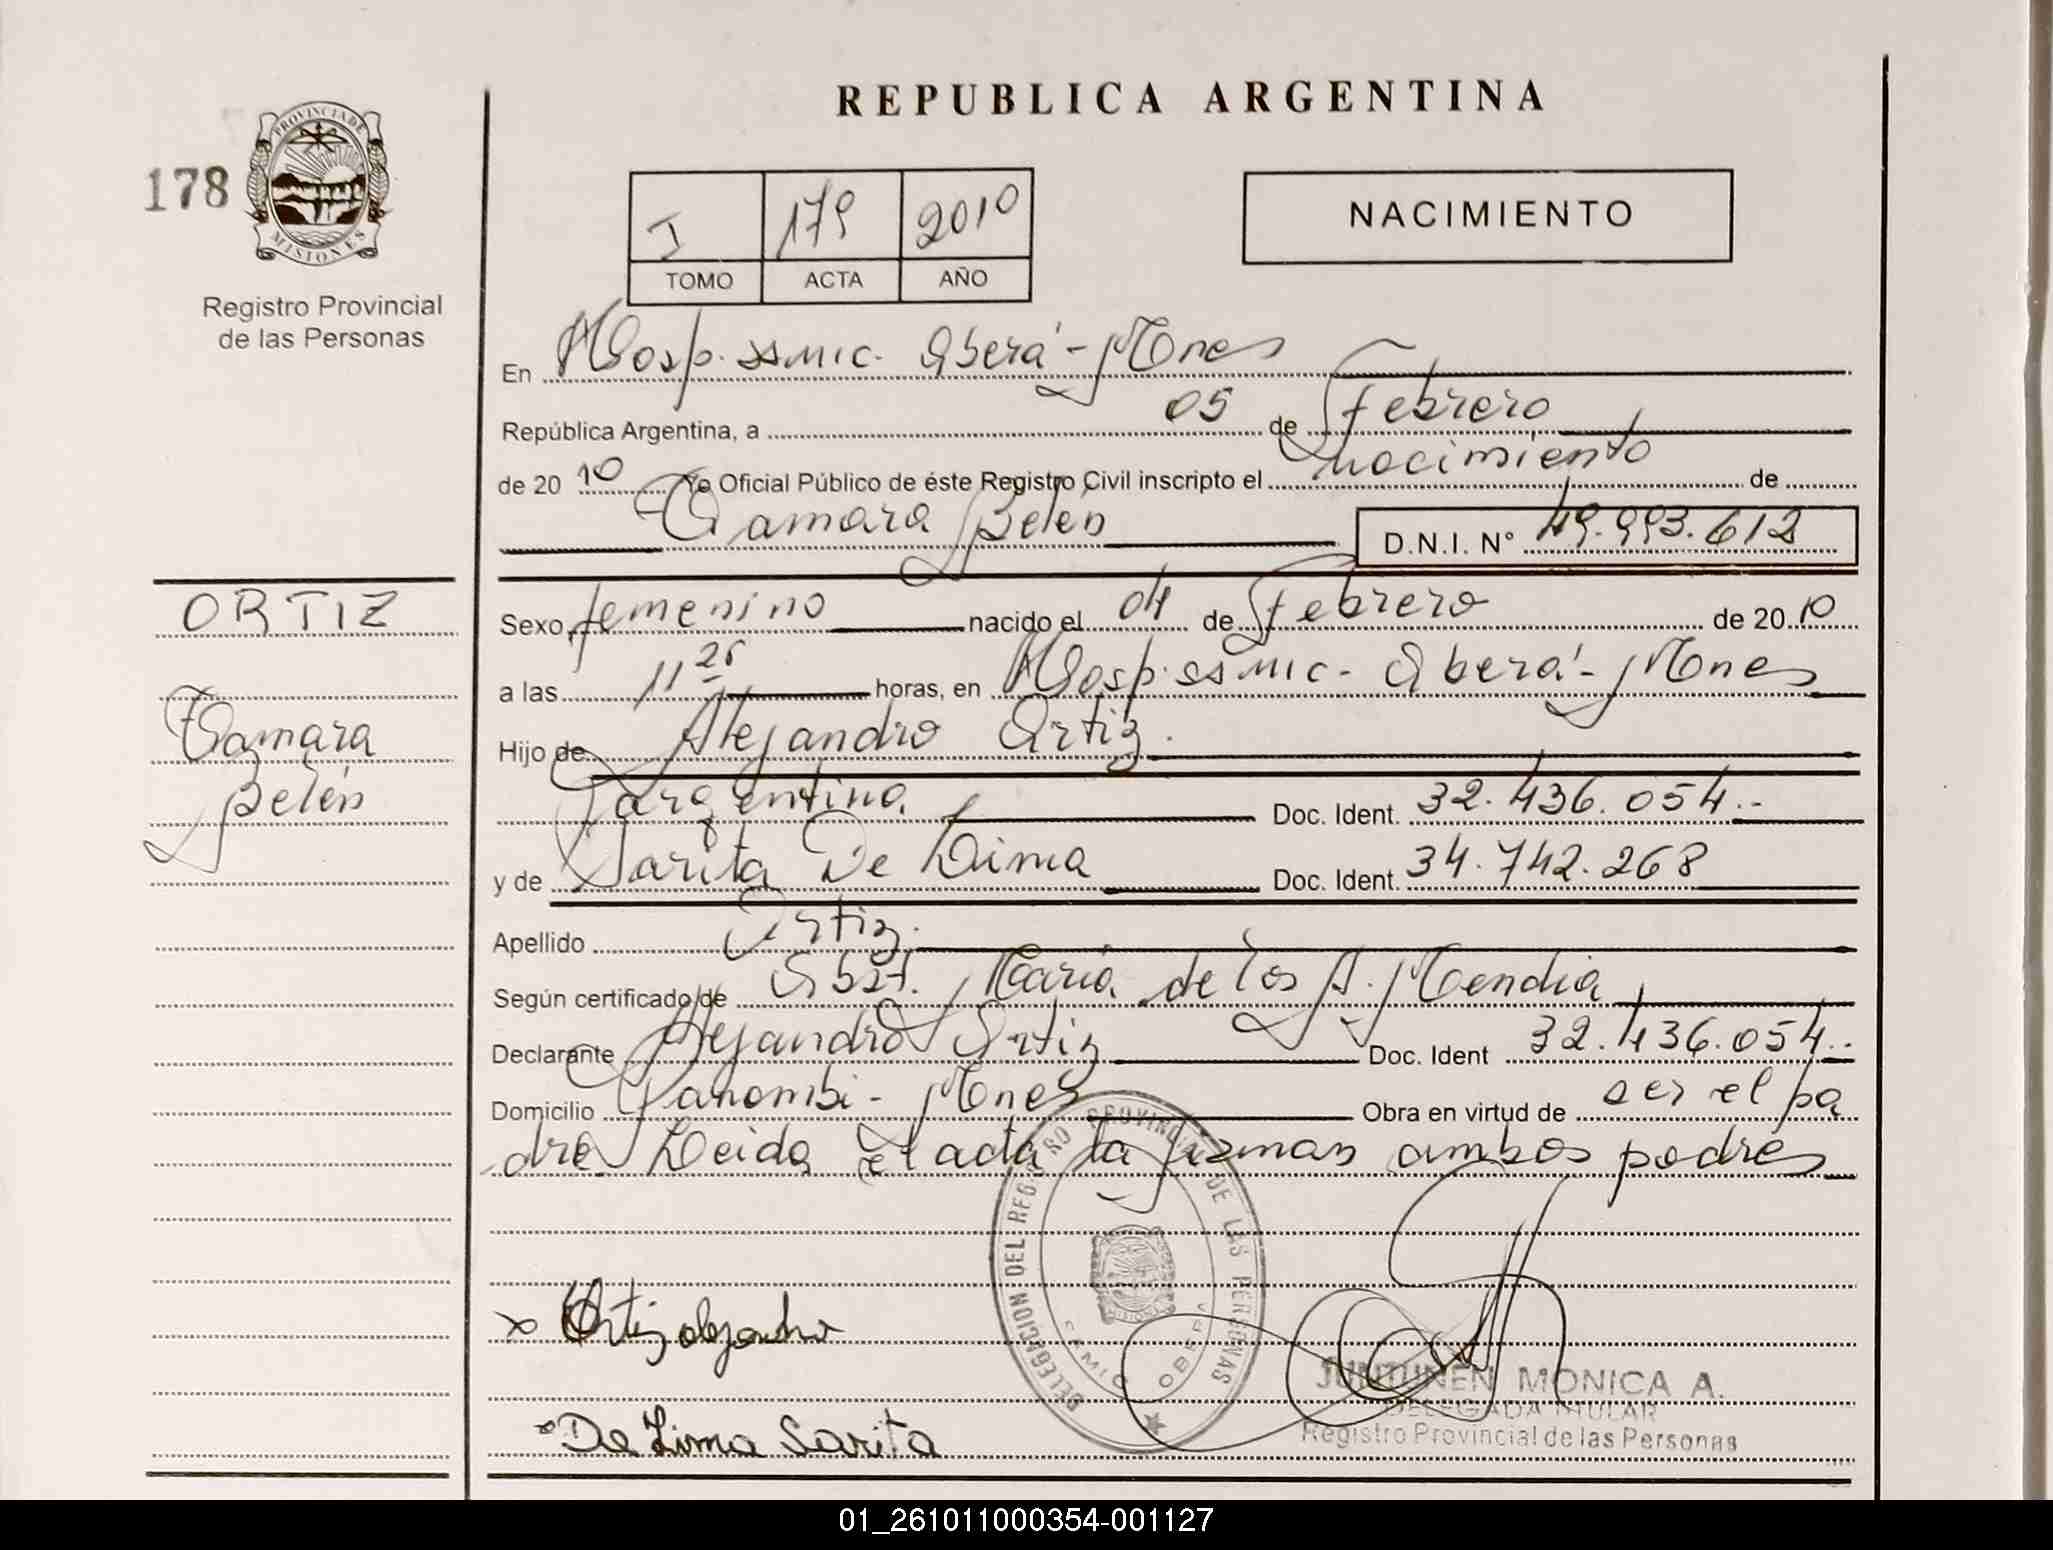 REPUBLICA ARGENTINA
178
PROVINCIA DE
MISIONES
Registro Provincial
de las Personas
I 179 2010
TOMO ACTA AÑO
NACIMIENTO
En Hosp. ssmic. Oberá - Mnes
República Argentina, a 05 de Febrero
de 20 10 Yo Oficial Público de éste Registro Civil inscripto el nacimiento de
Tamara Belén D.N.I. Nº 49.993.612
ORTIZ
Tamara
Belén
Sexo femenino nacido el 04 de Febrero de 20 10
a las 11 horas, en Hosp. ssmic - Oberá - Mnes
Hijo de Alejandro Ortiz.
argentino Doc. Ident. 32.436.054.-
y de Sarita De Lima Doc. Ident. 34.742.268
Apellido Ortiz.
Según certificado de Obst. Maria de los A. Mendia
Declarante Alejandro Ortiz Doc. Ident 32.436.054.-
Domicilio Panambi - Mnes Obra en virtud de ser el pa
dre Leida el acta la firman ambos padres
DELEGACION DEL REGISTRO PROVINCIAL DE LAS PERSONAS
x Ortiz alejandro
JUNTUNEN MONICA A.
DELEGADA TITULAR
Registro Provincial de las Personas
x De Lima Sarita
01_261011000354-001127